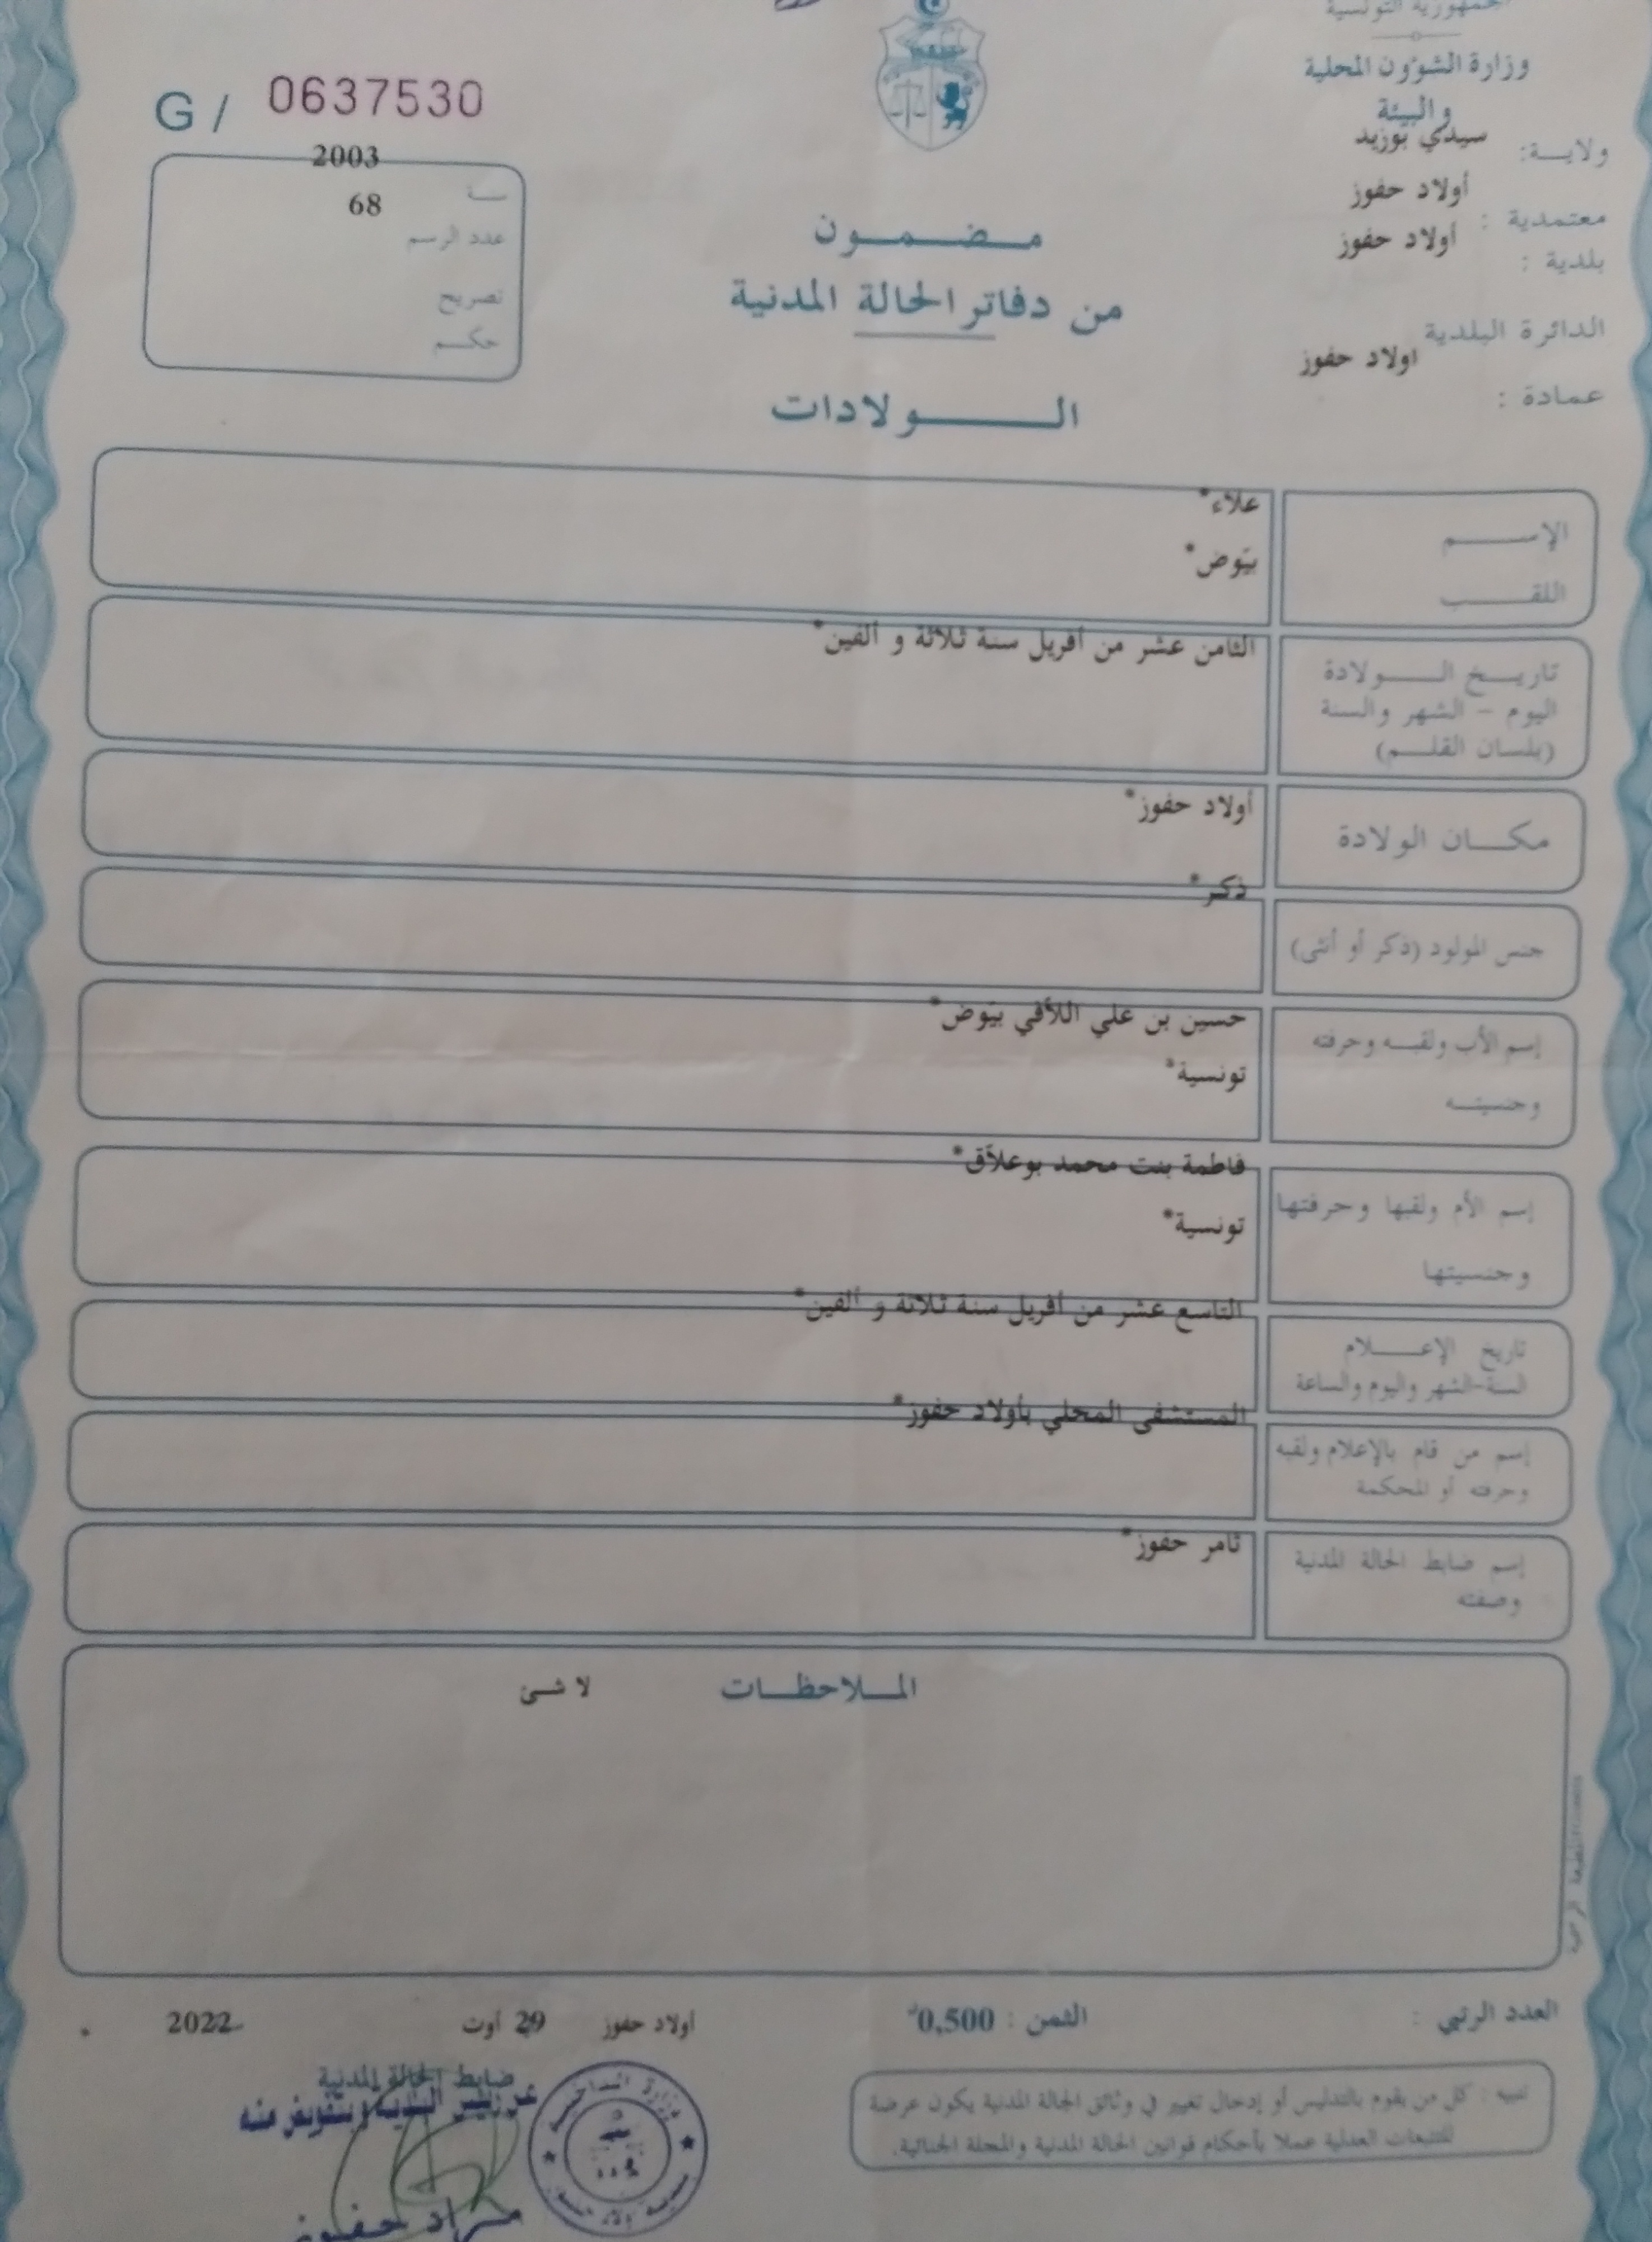 الجمهورية التونسية
وزارة الشؤون المحلية
والبيئة
ولايــة: سيدي بوزيد
معتمدية : أولاد حفوز
بلدية : أولاد حفوز
الدائرة البلدية
اولاد حفوز
عمادة :
G / 0637530
سنة 2003
عدد الرسم 68
تصريح
حكم
مضمون
من دفاتر الحالة المدنية
الولادات
الإسم علاء*
اللقب بيّوض*
تاريخ الولادة الثامن عشر من أفريل سنة ثلاثة و ألفين*
اليوم – الشهر والسنة
(بلسان القلم)
مكان الولادة أولاد حفوز*
جنس المولود (ذكر أو أنثى) ذكر*
إسم الأب ولقبه وحرفته حسين بن علي اللآفي بيّوض*
وجنسيته تونسية*
إسم الأم ولقبها وحرفتها فاطمة بنت محمد بوعلاّق*
وجنسيتها تونسية*
تاريخ الإعلام التاسع عشر من أفريل سنة ثلاثة و ألفين*
السنة-الشهر واليوم والساعة
إسم من قام بالإعلام ولقبه المستشفى المحلي بأولاد حفوز*
وحرفته أو المحكمة
إسم ضابط الحالة المدنية ثامر حفوز*
وصفته
الملاحظات لا شئ
المطبعة الرسمية
العدد الرتبي :
الثمن : 0,500د
أولاد حفوز 29 أوت 2022
ضابط الحالة المدنية
عن رئيس البلدية وبتفويض منه
مراد حفوز
وزارة الداخلية
تنبيه : كل من يقوم بالتدليس أو إدخال تغيير في وثائق الحالة المدنية يكون عرضة
للتتبعات العدلية عملا بأحكام قوانين الحالة المدنية والمجلة الجنائية.